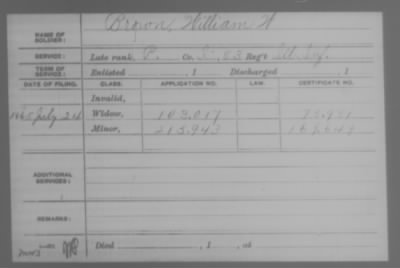 NAME OF SOLDIER: Brown, William W
SERVICE: Late rank, P. Co. 83 Reg't Ill. Inf.
TERM OF SERVICE: Enlisted , 1 Discharged , 1
DATE OF FILING. CLASS. APPLICATION NO. LAW. CERTIFICATE NO.
Invalid,
1865 July 24 Widow, 103,017
Minor, 213,943 169,649
ADDITIONAL SERVICES:
REMARKS:
Died , 1 , at